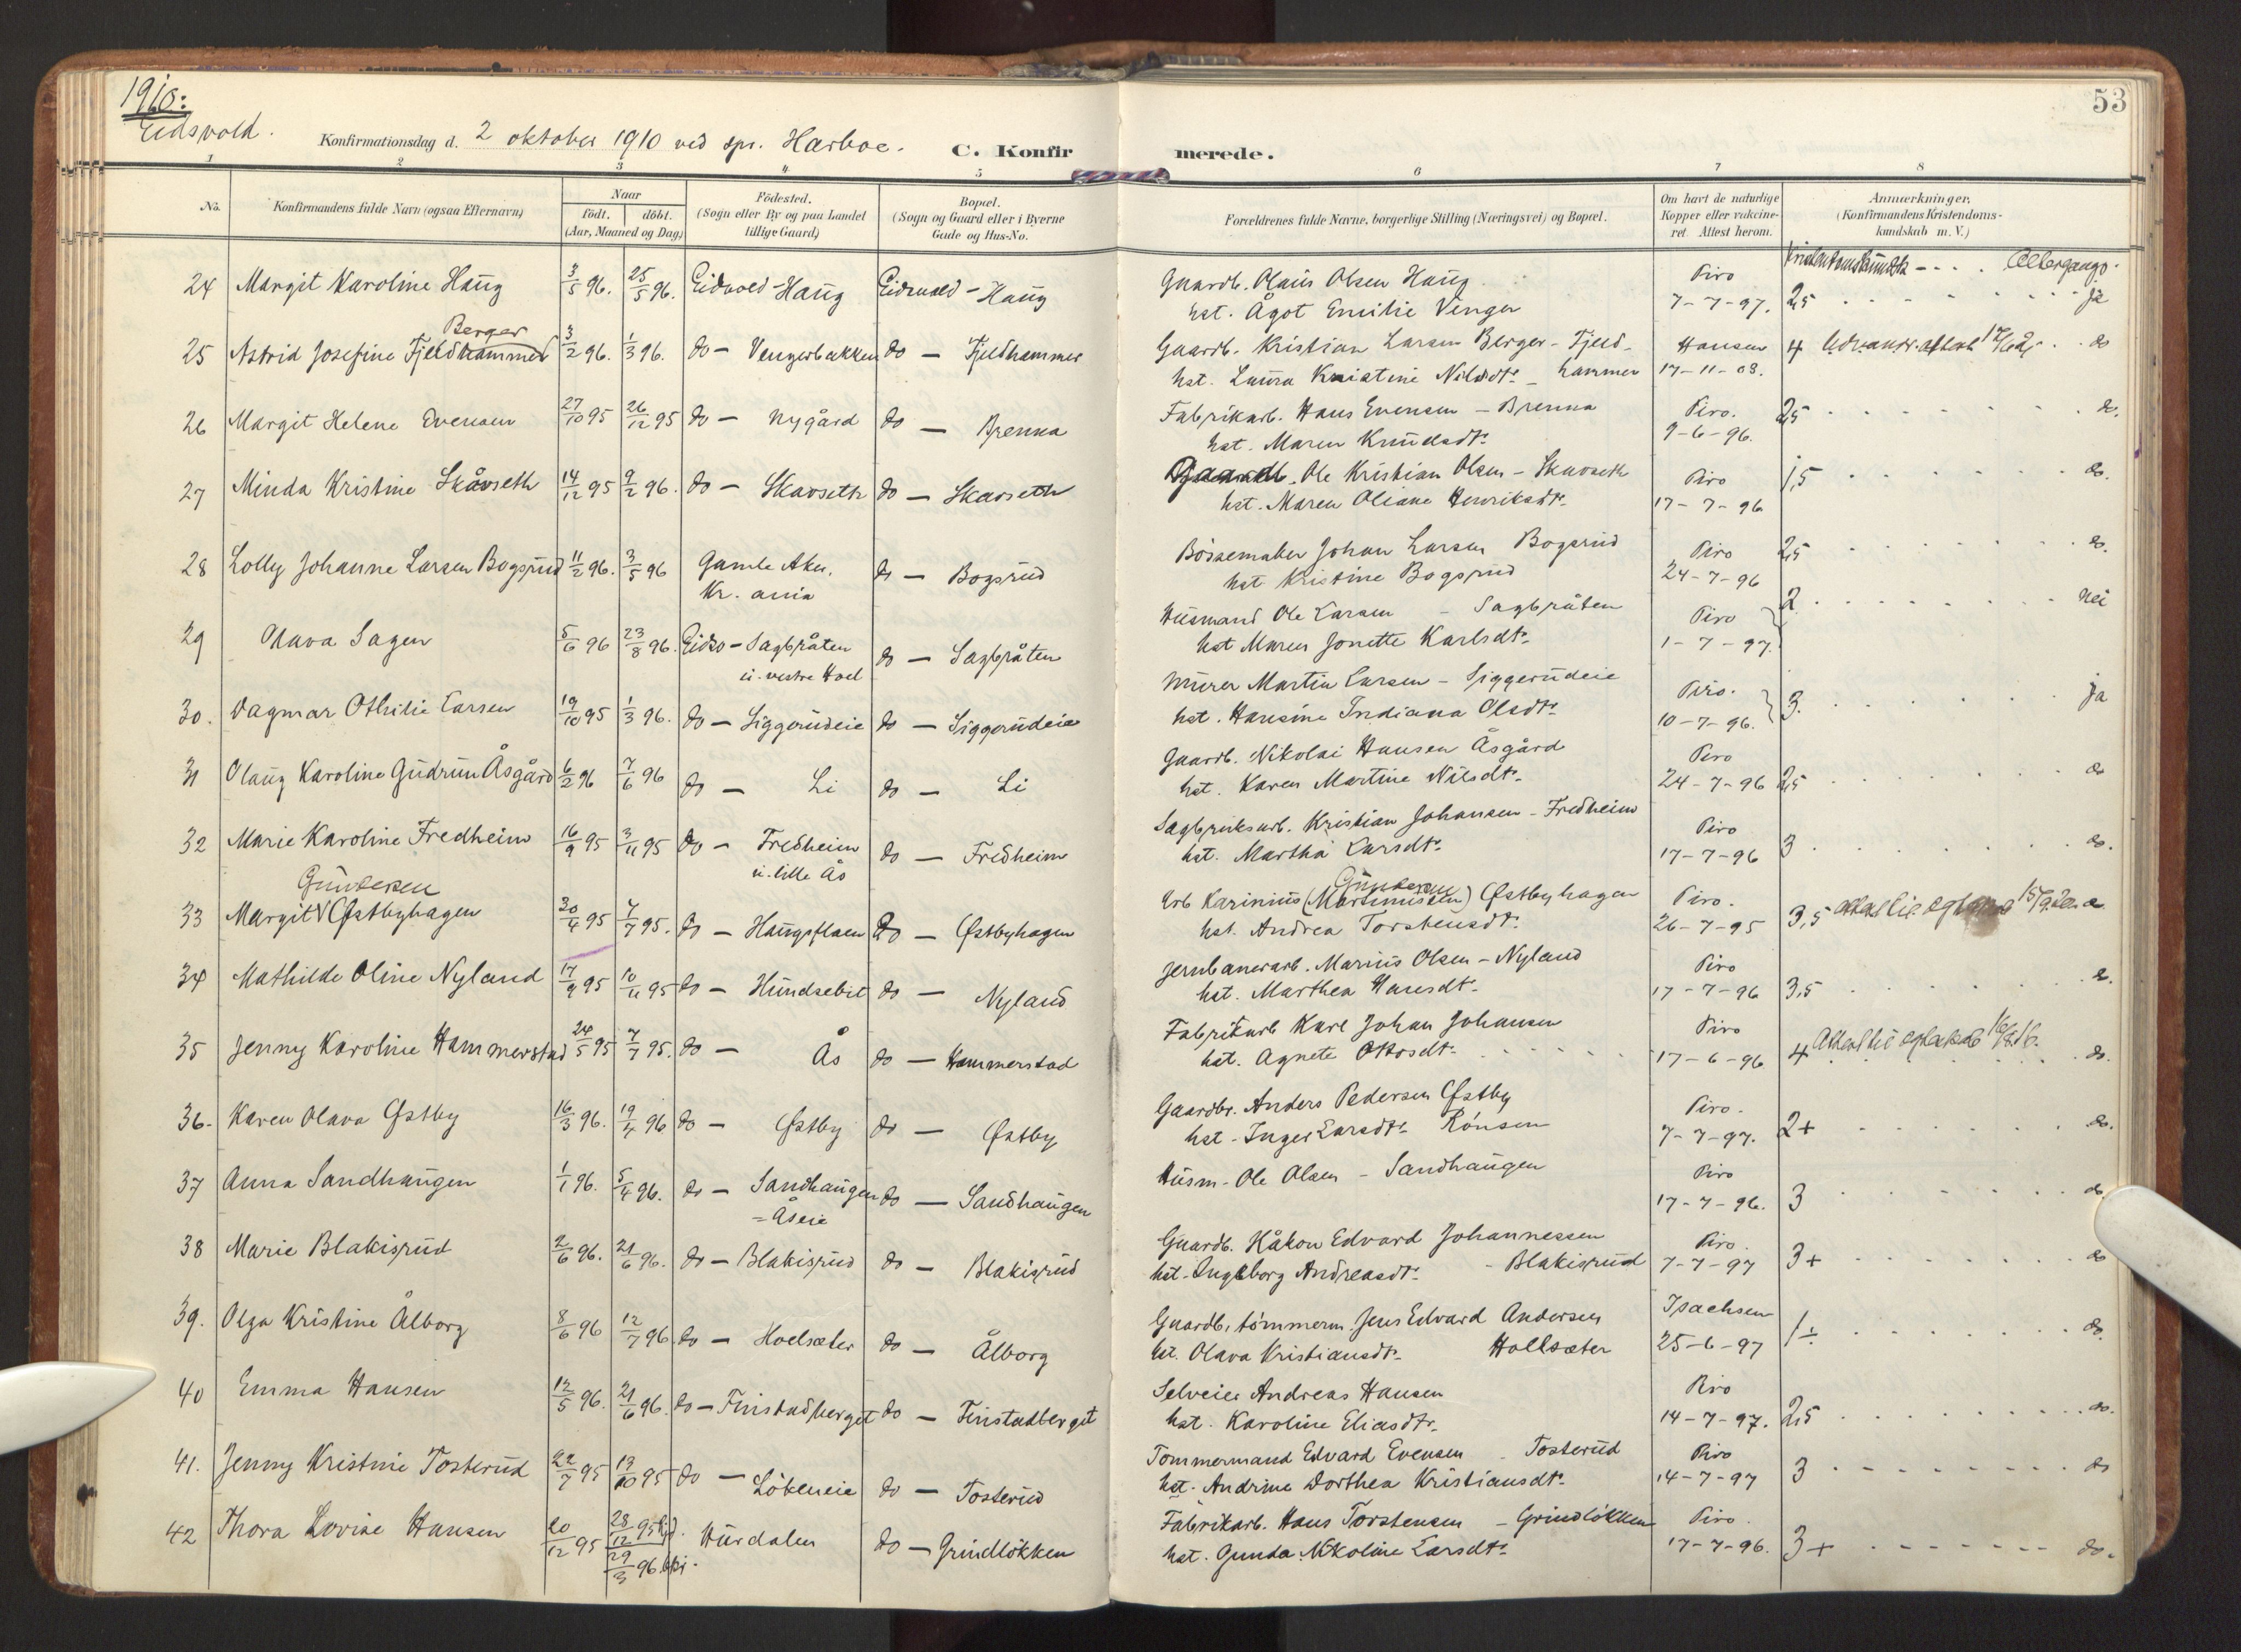 1910:
Eidsvold.
53
Konfirmationsdag d. 2 oktober 1910 ved spr. Harboe.
C. Konfirmerede.
1 2 3 4 5 6 7 8
No.
Konfirmandens fulde Navn (ogsaa Efternavn)
Naar
födt. döbt.
(Aar, Maaned og Dag)
Födested.
(Sogn eller By og paa Landet
tillige Gaard)
Bopæl.
(Sogn og Gaard eller i Byerne
Gade og Hus-No.
Forældrenes fulde Navne, borgerlige Stilling (Næringsvei) og Bopæl.
Om havt de naturlige
Kopper eller vakcine-
ret. Attest herom.
Anmærkninger.
(Konfirmandens Kristendoms-
kundskab m. V.)
Kristendomskundsk - - . .
24 Margit Karoline Haug 3/5 96. 25/5 96. Eidsvold - Haug Eidsvold - Haug Gaardb. Olaus Olsen Haug Piro
hst. Ågot Emilie Venger 7-7-97. 2,5 ja
Berger
25 Astrid Josefine Fjeldhammer 3/2 96. 1/3 96. do - Vengerbakken do - Fjeldhammer Gaardb. Kristian Larsen Berger - Fjeld- Hansen 4 do
hst. Laura Kristine Nilsdtr. hammer 17-11-03.
26 Margit Helene Evensen 27/10 95 26/12 95 do - Nygård do - Brenna Fabrikarb. Hans Evensen - Brenna Piro. 2,5 do.
hst. Maren Knudsdtr. 9-6-96.
27 Minda Kristine Skåvseth 14/12 95 9/2 96. do - Skavseth do - Skavseth Gaardb. Ole Kristian Olsen - Skavseth Piro 1,5 do.
hst. Maren Oliane Henriksdtr. 17-7-96
28 Lolly Johanne Larsen Bogsrud 11/2 96. 3/5 96 Gamle Aker, do - Bogsrud Bössemaker Johan Larsen Bogsrud Piro 2,5 do.
Kr. ania hst Kristine Bogsrud 24-7-96
29 Olava Sagen 5/6 96 23/8 96. Eidsv - Sagbråten do - Sagbråten Husmand Ole Larsen - Sagbråten Piro 2 nei
u. vestre Hoel hst Maren Jonette Karlsdtr. 1-7-97.
30. Dagmar Othilie Larsen 19/10 95 1/3 96. do - Siggerudeie do - Siggerudeie Murer Martin Larsen - Siggerudeie Piro. 3. ja
hst. Hansine Indiana Olsdtr. 10-7-96.
31 Olaug Karoline Gudrun Åsgård 6/2 96 7/6 96 do - Li do - Li Gaardb. Nikolai Hansen Åsgård Piro
hst. Karen Martine Nilsdtr. 24-7-96 2,5 do
32 Marie Karoline Fredheim 16/9 95 3/11 95 do - Fredheim do - Fredheim Sagbruksarb. Kristian Johansen - Fredheim Piro
u. lille Ås hst. Martha Larsdtr. 17-7-96 3 do.
Gundersen Gundersen
33 Margit V Østbyhagen 30/4 95 7/7 95. do - Haugsflaen do - Østbyhagen Arb Karinius (Martiniusen) Østbyhagen Piro. 3,5
hst. Andrea Torstensdt. 26-7-95
34 Mathilde Oline Nyland 17/9 95 10/11 95 do - Hundsebit do - Nyland Jernbanearb. Marius Olsen - Nyland Piro
hst. Marthea Hansdt. 17-7-96 3,5 do.
35 Jenny Karoline Hammerstad 24/5 95 7/7 95. do - Ås do - Hammerstad Fabrikarb Karl Johan Johansen Piro
hst. Agnete Ottosdt. 17-6-96 4 do.
36. Karen Olava Østby 16/3 96. 19/4 96 do - Østby do - Østby Gaardbr. Anders Pedersen Østby Piro.
hst - Inger Larsdtr. Rönsen 7-7-97. 2+ do.
37 Anna Sandhaugen 1/1 96. 5/4 96. do - Sandhaugen do - Sandhaugen Husm - Ole Olsen - Sandhaugen Piro
= Åseie 17-7-96. 3 do
38 Marie Blakisrud 2/6 96. 21/6 96. do - Blakisrud do - Blakisrud Gaardb. Håkon Edvard Johannessen Piro.
hst - Ingeborg Andreasdt. - Blakisrud 7-7-97 3+ do
39. Olga Kristine Ålborg 8/6 96 12/7 96. do - Hoelsæter do - Ålborg Gaardb, tömmerm. Jens Edvard Andersen Isachsen
hst. Olava Kristiansdtr. Hollsæter 25-6-97 1÷ do.
40 Emma Hansen 12/5 96. 21/6 96. do - Finstadberget do - Finstadberget Selveier Andreas Hansen Piro
hst. Karoline Eliasdtr. 14-7-97. 2,5 do.
41. Jenny Kristine Tosterud 22/7 95 13/10 95 do - Lökeneie do - Tosterud Tommermand Edvard Evensen - Tosterud Piro
hst. Andrine Dorthea Kristiansdt. 14-7-97 3 do
42 Thora Lovise Hansen 20/12 95 28/12 95 Hurdalen do - Grindlökken Fabrikarb. Hans Torstensen - Grindlökken Piro.
29/3 96. hst. Gunda Nikoline Larsdtr. 17-7-96. 3+ do.